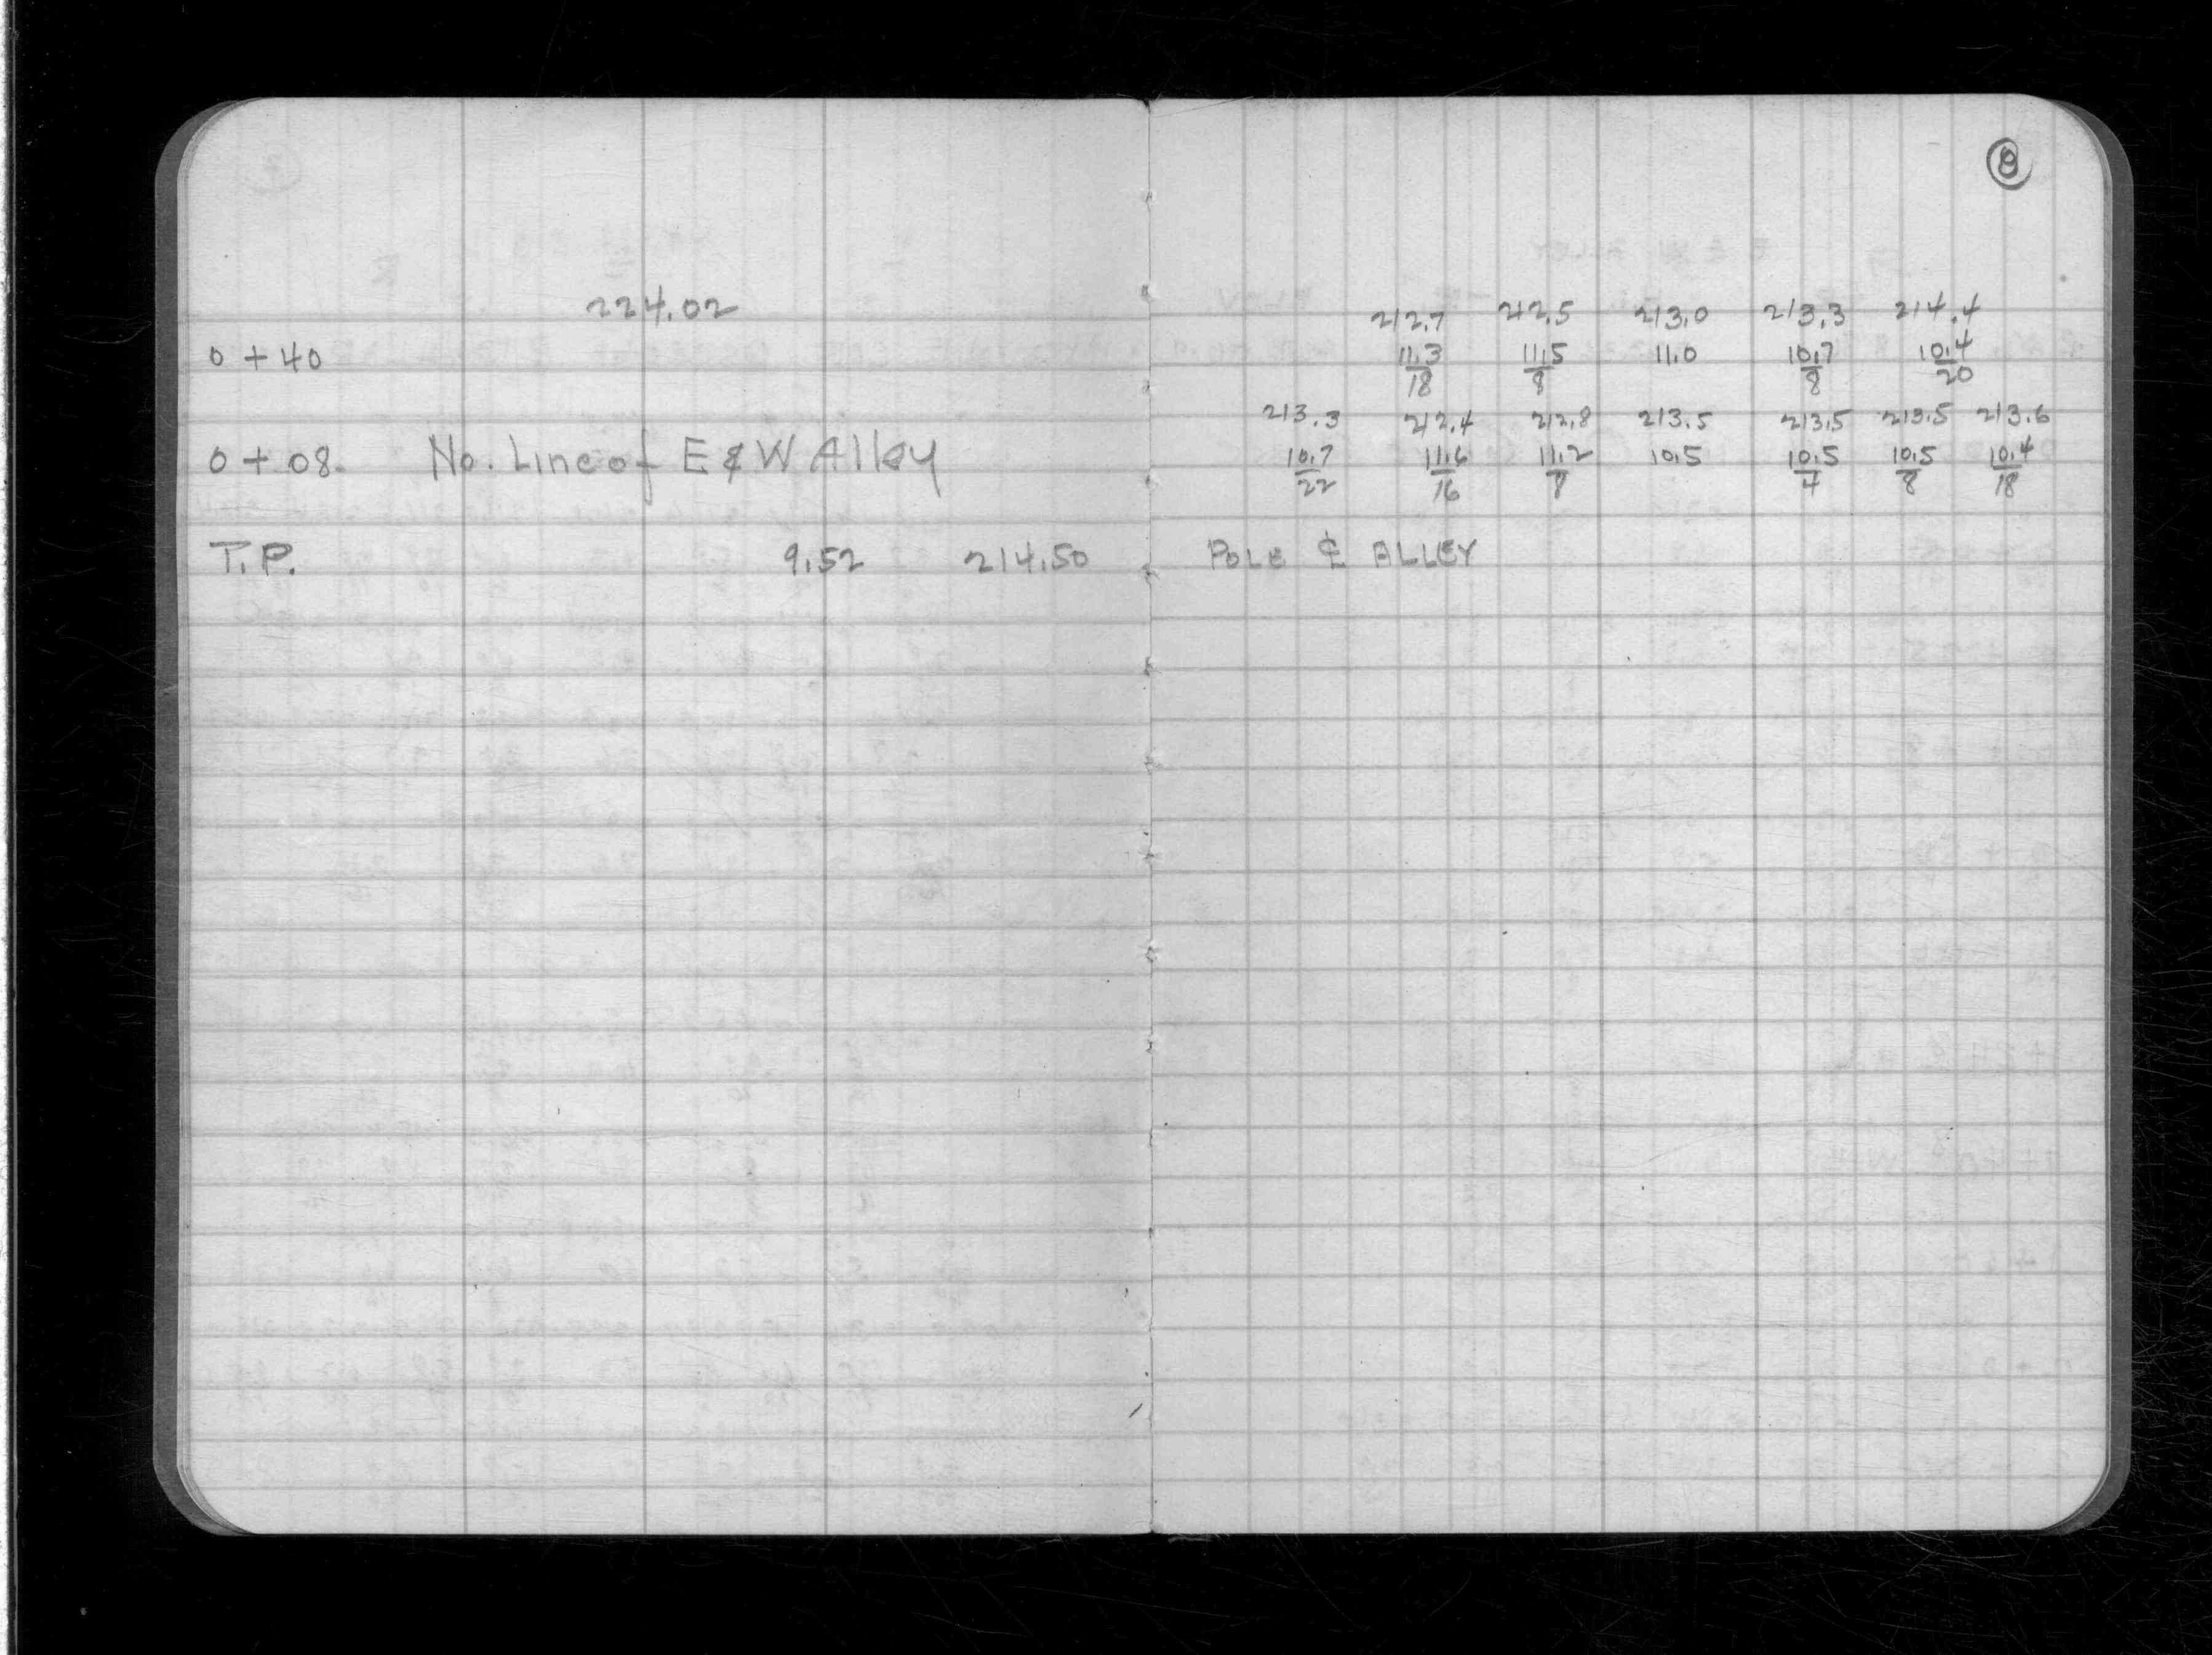 8
224.02
212.7 212.5 213.0 213.3 214.4
0 + 40 11.3/18 11.5/8 11.0 10.7/8 10.4/20
213.3 212.4 212.8 213.5 213.5 213.5 213.6
0 + 08 No. Line of E & W Alley 10.7/22 11.6/16 11.2/8 10.5 10.5/4 10.5/8 10.4/18
T.P. 9.52 214.50 POLE ℄ ALLEY